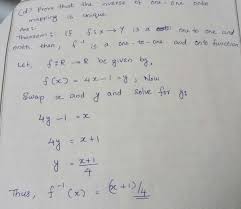 (d) Prove that the inverse of one-one onto
mapping is unique.
Ans:-
Theorem: If f: x → Y is a one to one and
onto, then, f⁻¹ is a one-to-one and onto function
Let, f: R → R be given by,
f(x) = 4x-1 = y; Now
Swap x and y and solve for y:
4y-1 = x
4y = x+1
y = x+1/4
Thus, f⁻¹(x) = (x+1)/4